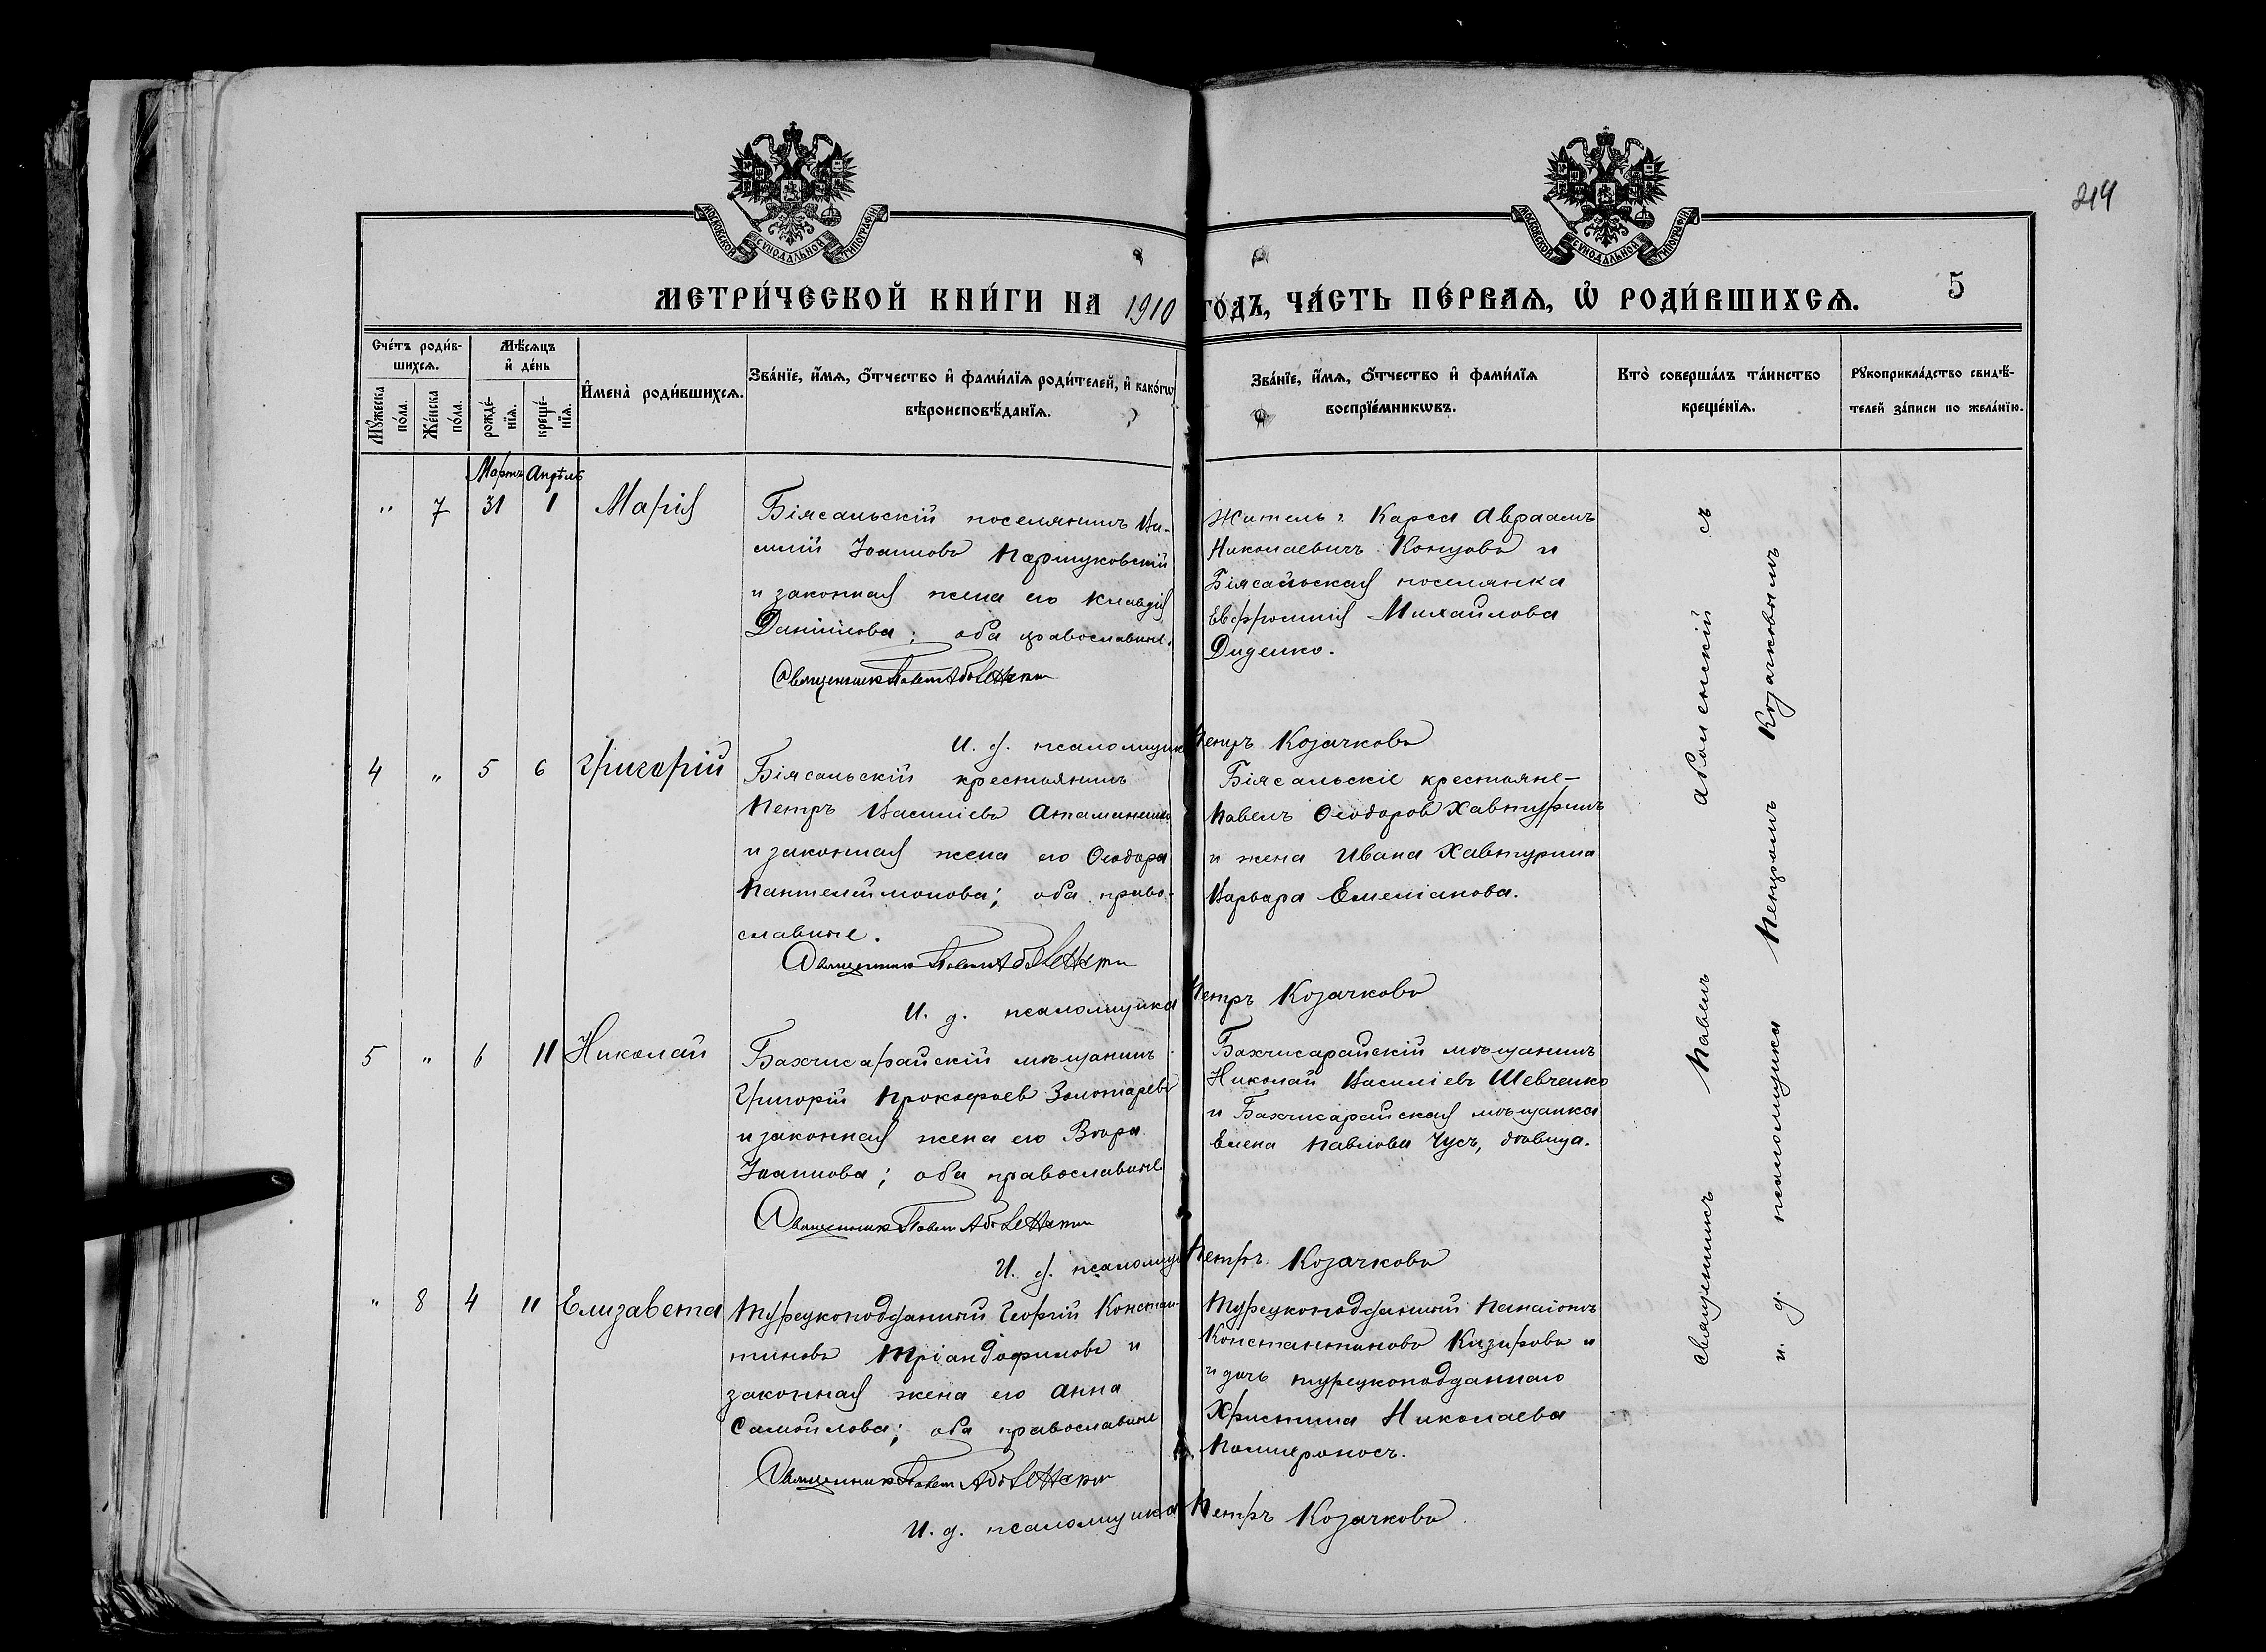 214
МОСКОВСКОЙ СѴНОДАЛЬНОЙ ТИПОГРАФІИ
МОСКОВСКОЙ СѴНОДАЛЬНОЙ ТИПОГРАФІИ
5
МЕТРИ́ЧЕСКОЙ КНИ́ГИ НА 1910 ГО́ДЪ, ЧА́СТЬ ПЕ́РВАѦ, Ѡ РОДИ́ВШИХСѦ.
Сче́тъ роди́в-
шихсѧ.
Мꙋ́жеска по́ла.
Же́нска по́ла.
Мѣ́сѧцъ
и҆ де́нь
рожде́-
нїѧ.
креще́-
нїѧ.
И҆мена̀ роди́вшихсѧ.
Зва́нїе, и҆́мѧ, ѻ҆́тчество и҆ фами́лїѧ роди́телей, и҆ како́гѡ
вѣроисповѣ́данїѧ.
Зва́нїе, и҆́мѧ, ѻ҆́тчество и҆ фами́лїѧ
воспрїе́мникѡвъ.
Кто̀ соверша́лъ та́инство
креще́нїѧ.
Рꙋкоприкла́дство свидѣ́-
телей за́писи по жела́нїю.
Мартъ Апрѣль
" 7 31 1 Марія
Біясальскій поселянинъ Ва-
силій Іоанновъ
и законная жена его Клавдія
Даніилова; оба православные.
Священникъ Павелъ
И. д. псаломщика Петръ Козачковъ
Житель г. Карса Авраамъ
Николаевичъ Концовъ и
Біясальская поселянка
Евфросинія Михайлова
Диденко.
4 " 5 6 Григорій
Біясальскій крестьянинъ
Петръ Васильевъ
и законная жена его Ѳеодора
Пантелеймонова; оба право-
славные.
Священникъ Павелъ
И. д. псаломщика Петръ Козачковъ
Біясальскіе крестьяне-
Павелъ Ѳеодоров Хавтуринъ
и жена Ивана Хавтурина
Варвара Емеліанова.
5 " 6 11 Николай
Бахчисарайскій мѣщанинъ
Григорій Прокофьев Золотаревъ
и законная жена его Вѣра
Іоаннова; оба православные
Священникъ Павелъ
И. д. псаломщика Петръ Козачковъ
Бахчисарайскій мѣщанинъ
Николай Василіевъ Шевченко
и Бахчисарайская мѣщанка
Елена Павлова Чусъ, дѣвица.
" 8 4 11 Елизавета
Турецкоподданный Георгій Констан-
тиновъ Тріандофиловъ и
законная жена его Анна
Самойлова; оба православные
Священникъ Павелъ
И. д. псаломщика Петръ Козачковъ
Турецкоподданный Панаіотъ
Константиновъ Кизировъ и
и дочь турецкоподданнаго
Христина Николаева
Священникъ Павелъ съ
и. д. псаломщика Петромъ Козачковымъ